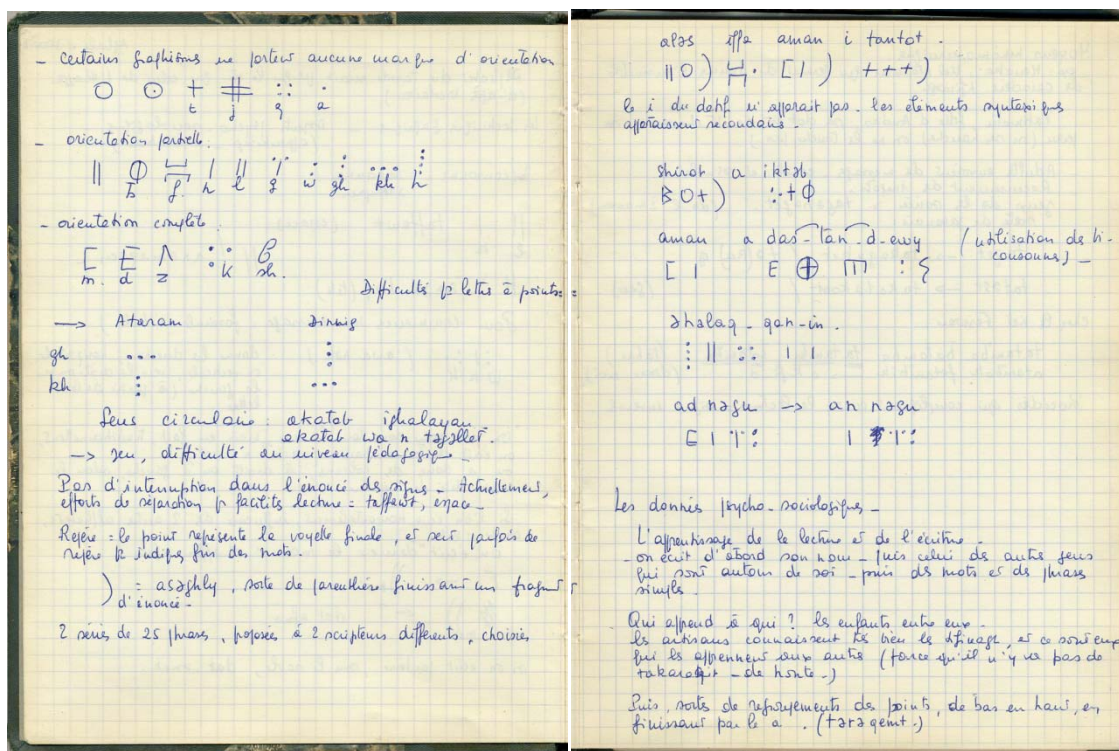 – certains graphismes ne portent aucune marque d'orientation
ⵔ ⵙ + ⵌ ⵆ ·
t j q a
– orientation partielle.
|| ⴱ ⵊ | || ⵗ : ⵗ ··· ⵂ
b f. n l g w gh kh h
– orientation complète.
[ E Λ ·: B
m. d z k sh.
Difficultés pr lettres à points =
→ Ataram Ainnig
gh ··· ⵗ
kh ⵗ ···
Sens circulaire : akatab ighalayan
akatab wa n təɣəllet.
→ jeu, difficulté au niveau pédagogiq –
Pas d'interruption dans l'énoncé des signes – Actuellement,
efforts de séparation pr faciliter lecture = taffewt, espace –
Repère = le point représente la voyelle finale, et sert parfois de
repère pr indiquer fins des mots.
) = asəghly, sorte de parenthèse finissant un fragment
d'énoncé –
2 séries de 25 phrases, proposées à 2 scripteurs différents, choisies
aləs iffa aman i tantot.
|| O ) ⵊ · [ | ) + + + )
le i du datif n'apparait pas. les éléments syntaxiques
apparaissent secondaires.
shirot a iktəb
B O + ) ·: + ⴱ
aman a das-tan-d-ewy (utilisation de bi-
consonnes) –
[ | E ⊕ Ш : ⵢ
əhalaq-qan-in.
ⵂ || ⵆ | |
ad nəgu → an nəgu
E | ·|· : | ·|· :
Les données psycho-sociologiques –
L'apprentissage de la lecture et de l'écriture.
– on écrit d'abord son nom – puis celui des autres gens
qui sont autour de soi – puis des mots et des phrases
simples.
Qui apprend à qui ? les enfants entre eux.
les artisans connaissent très bien les tifinagh, et ce sont eux
qui les apprennent aux autres (parce qu'il n'y va pas de
takarakit – de honte –)
Puis, sortes de regroupements des points, de bas en haut, en
finissant par le a . (təraqemt.)